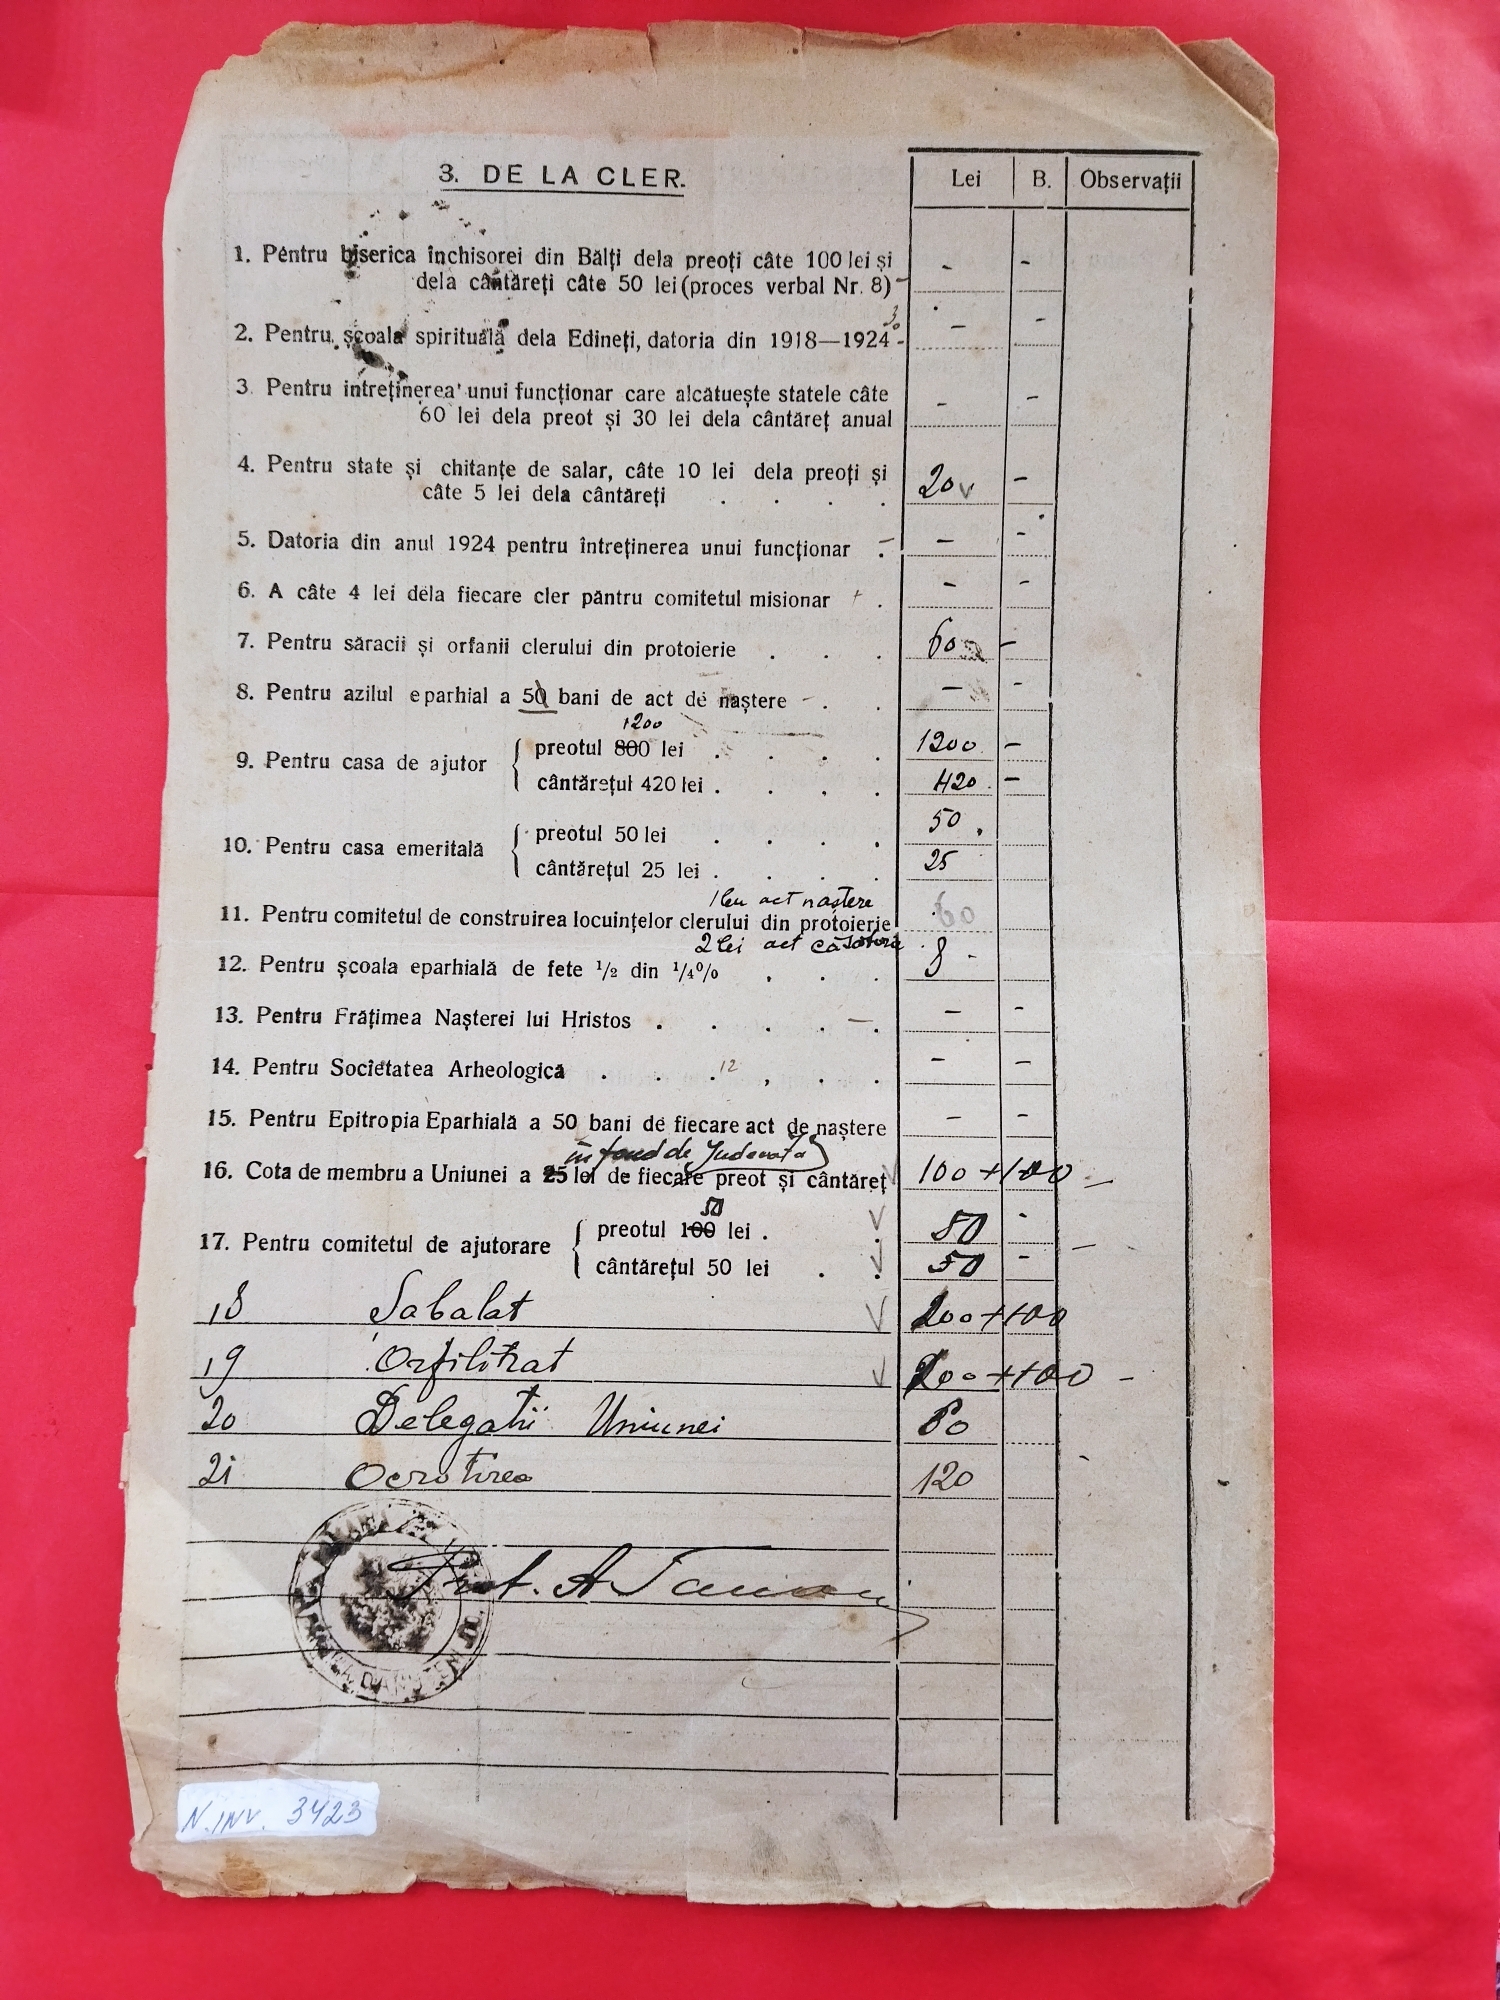 3. DE LA CLER.
Lei B. Observații
1. Pentru biserica închisorei din Bălți dela preoți câte 100 lei și - -
dela cântăreți câte 50 lei (proces verbal Nr. 8)
2. Pentru școala spirituală dela Edineți, datoria din 1918—1924 - -
3. Pentru intreținerea unui funcționar care alcătuește statele câte - -
60 lei dela preot și 30 lei dela cântăreț anual
4. Pentru state și chitanțe de salar, câte 10 lei dela preoți și 20 v -
câte 5 lei dela cântăreți . . . .
5. Datoria din anul 1924 pentru întreținerea unui funcționar . - -
6. A câte 4 lei dela fiecare cler păntru comitetul misionar . - -
7. Pentru săracii și orfanii clerului din protoierie . . . 60 -
8. Pentru azilul eparhial a 50 bani de act de naștere . . - -
1200
9. Pentru casa de ajutor { preotul 800 lei . . . . 1200 -
cântărețul 420 lei . . . . 420 -
10. Pentru casa emeritală { preotul 50 lei . . . . 50
cântărețul 25 lei . . . . 25
1 leu act naștere
11. Pentru comitetul de construirea locuințelor clerului din protoierie 60
2 lei act căsătorie
12. Pentru școala eparhială de fete 1/2 din 1/4% . . . 8 -
13. Pentru Frățimea Nașterei lui Hristos . . . . . - -
14. Pentru Societatea Arheologică . . . 12 , . . - -
15. Pentru Epitropia Eparhială a 50 bani de fiecare act de naștere - -
în fond de
16. Cota de membru a Uniunei a 25 lei de fiecare preot și cântăreț 100 + 100 -
50
17. Pentru comitetul de ajutorare { preotul 100 lei . . 50 -
cântărețul 50 lei . . 50 -
18 Sabalat 200 + 100
19 Orfilitrat 200 + 100 -
20 Delegatii Uniunei 80
21 Ocrotirea 120
Prot. A
N. INV. 3423